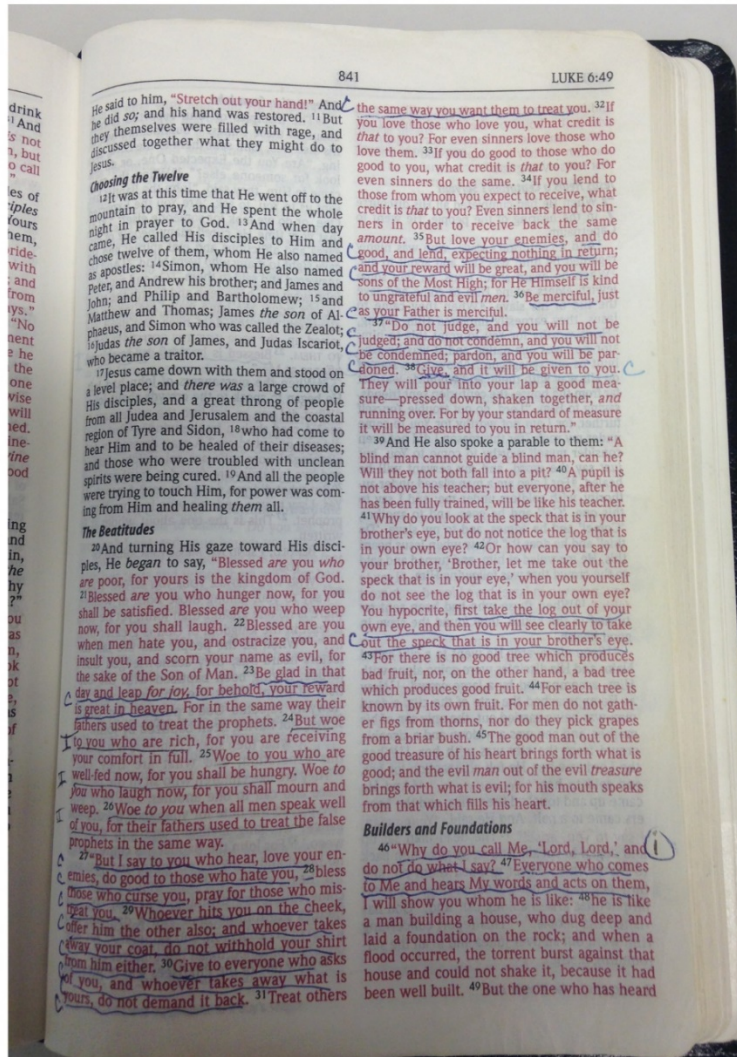 841
LUKE 6:49
drink
And
s not
n, but
o call
"
les of
ciples
Yours
hem,
ride-
with
; and
from
ys."
"No
ment
e he
the
one
wise
will
ned.
ine-
vine
ood
ing
nd
in,
he
hy
?"
ou
as
n,
ok
ot
e,
s
of
He said to him, "Stretch out your hand!" And
he did so; and his hand was restored. 11But
they themselves were filled with rage, and
discussed together what they might do to
Jesus.
Choosing the Twelve
12It was at this time that He went off to the
mountain to pray, and He spent the whole
night in prayer to God. 13And when day
came, He called His disciples to Him and
chose twelve of them, whom He also named
as apostles: 14Simon, whom He also named
Peter, and Andrew his brother; and James and
John; and Philip and Bartholomew; 15and
Matthew and Thomas; James the son of Al-
phaeus, and Simon who was called the Zealot;
16Judas the son of James, and Judas Iscariot,
who became a traitor.
17Jesus came down with them and stood on
a level place; and there was a large crowd of
His disciples, and a great throng of people
from all Judea and Jerusalem and the coastal
region of Tyre and Sidon, 18who had come to
hear Him and to be healed of their diseases;
and those who were troubled with unclean
spirits were being cured. 19And all the people
were trying to touch Him, for power was com-
ing from Him and healing them all.
The Beatitudes
20And turning His gaze toward His disci-
ples, He began to say, "Blessed are you who
are poor, for yours is the kingdom of God.
21Blessed are you who hunger now, for you
shall be satisfied. Blessed are you who weep
now, for you shall laugh. 22Blessed are you
when men hate you, and ostracize you, and
insult you, and scorn your name as evil, for
the sake of the Son of Man. 23Be glad in that
day and leap for joy, for behold, your reward
is great in heaven. For in the same way their
fathers used to treat the prophets. 24But woe
to you who are rich, for you are receiving
your comfort in full. 25Woe to you who are
well-fed now, for you shall be hungry. Woe to
you who laugh now, for you shall mourn and
weep. 26Woe to you when all men speak well
of you, for their fathers used to treat the false
prophets in the same way.
27"But I say to you who hear, love your en-
emies, do good to those who hate you, 28bless
those who curse you, pray for those who mis-
treat you. 29Whoever hits you on the cheek,
offer him the other also; and whoever takes
away your coat, do not withhold your shirt
from him either. 30Give to everyone who asks
of you, and whoever takes away what is
yours, do not demand it back. 31Treat others
the same way you want them to treat you. 32If
you love those who love you, what credit is
that to you? For even sinners love those who
love them. 33If you do good to those who do
good to you, what credit is that to you? For
even sinners do the same. 34If you lend to
those from whom you expect to receive, what
credit is that to you? Even sinners lend to sin-
ners in order to receive back the same
amount. 35But love your enemies, and do
good, and lend, expecting nothing in return;
and your reward will be great, and you will be
sons of the Most High; for He Himself is kind
to ungrateful and evil men. 36Be merciful, just
as your Father is merciful.
37"Do not judge, and you will not be
judged; and do not condemn, and you will not
be condemned; pardon, and you will be par-
doned. 38Give, and it will be given to you.
They will pour into your lap a good mea-
sure—pressed down, shaken together, and
running over. For by your standard of measure
it will be measured to you in return."
39And He also spoke a parable to them: "A
blind man cannot guide a blind man, can he?
Will they not both fall into a pit? 40A pupil is
not above his teacher; but everyone, after he
has been fully trained, will be like his teacher.
41Why do you look at the speck that is in your
brother's eye, but do not notice the log that is
in your own eye? 42Or how can you say to
your brother, 'Brother, let me take out the
speck that is in your eye,' when you yourself
do not see the log that is in your own eye?
You hypocrite, first take the log out of your
own eye, and then you will see clearly to take
out the speck that is in your brother's eye.
43For there is no good tree which produces
bad fruit, nor, on the other hand, a bad tree
which produces good fruit. 44For each tree is
known by its own fruit. For men do not gath-
er figs from thorns, nor do they pick grapes
from a briar bush. 45The good man out of the
good treasure of his heart brings forth what is
good; and the evil man out of the evil treasure
brings forth what is evil; for his mouth speaks
from that which fills his heart.
Builders and Foundations
46"Why do you call Me, 'Lord, Lord,' and
do not do what I say? 47Everyone who comes
to Me and hears My words and acts on them,
I will show you whom he is like: 48he is like
a man building a house, who dug deep and
laid a foundation on the rock; and when a
flood occurred, the torrent burst against that
house and could not shake it, because it had
been well built. 49But the one who has heard